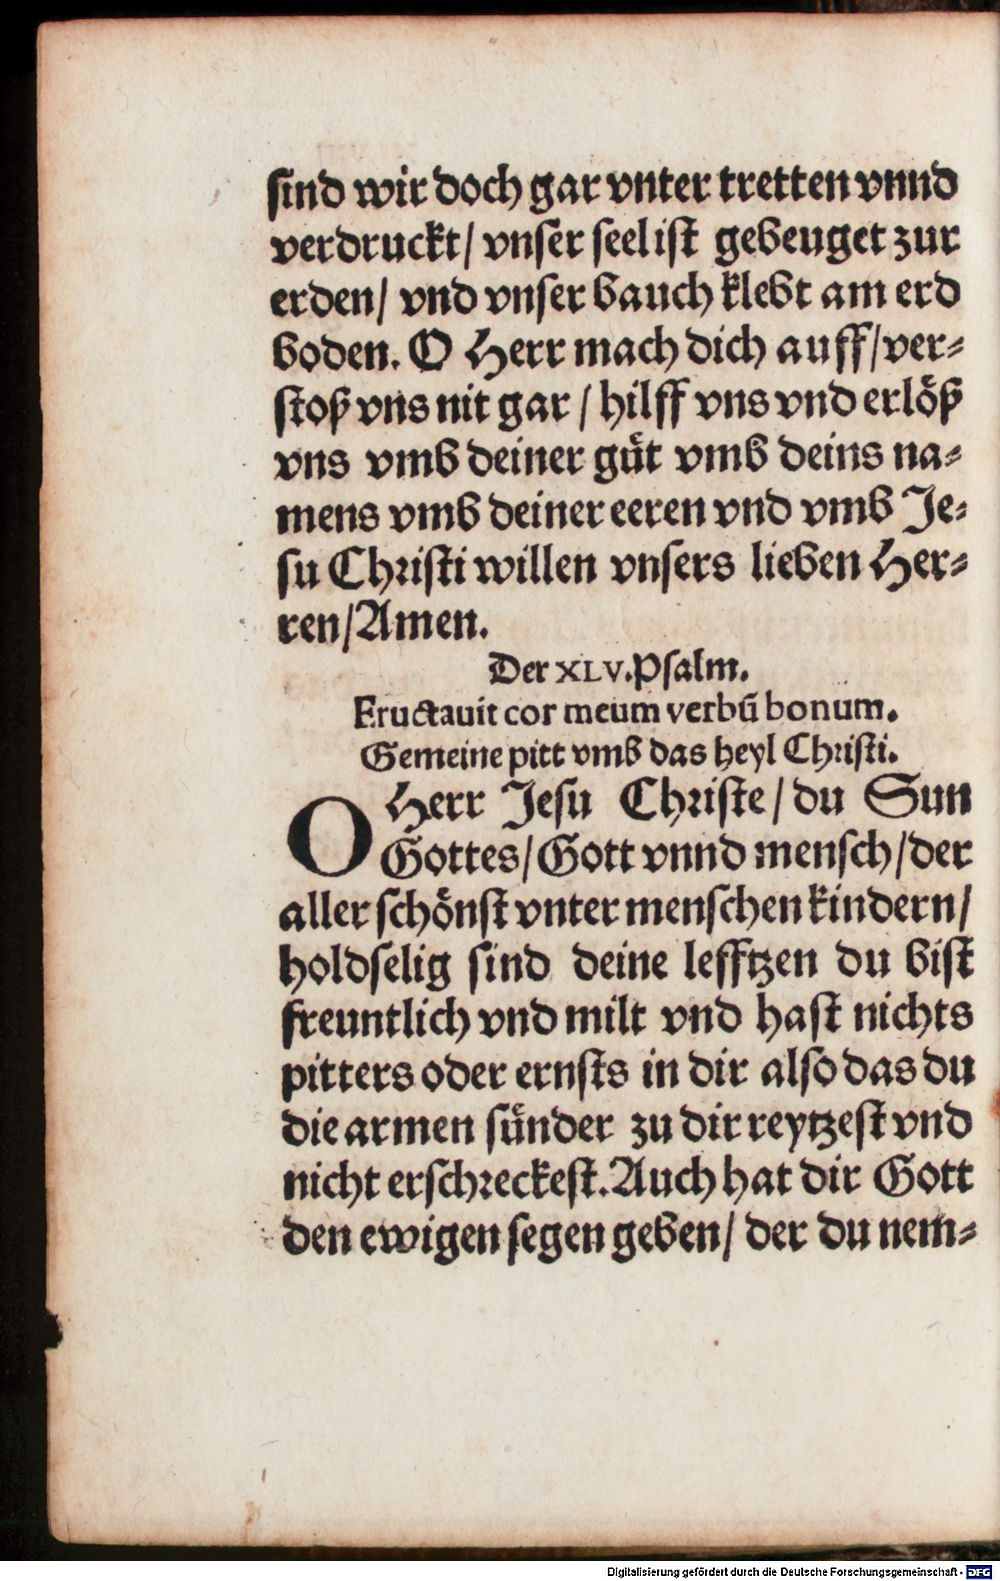 sind wir doch gar vnter tretten vnnd
verdruckt/ vnser seel ist gebeuget zur
erden/ vnd vnser bauch klebt am erd
boden. O Herr mach dich auff/ver⸗
stoß vns nit gar / hilff vns vnd erlöß
vns vmb deiner güt vmb deins na⸗
mens vmb deiner eeren vnd vmb Je⸗
su Christi willen vnsers lieben Her⸗
ren/Amen.
Der XLV. Psalm.
Eructauit cor meum verbū bonum.
Gemeine pitt vmb das heyl Christi.
O Herr Jesu Christe/ du Sun
Gottes/ Gott vnnd mensch/der
aller schönst vnter menschen kindern/
holdselig sind deine lefftzen du bist
freuntlich vnd milt vnd hast nichts
pitters oder ernsts in dir also das du
die armen sünder zu dir reytzest vnd
nicht erschreckest. Auch hat dir Gott
den ewigen segen geben/ der du nem⸗
Digitalisierung gefördert durch die Deutsche Forschungsgemeinschaft - DFG